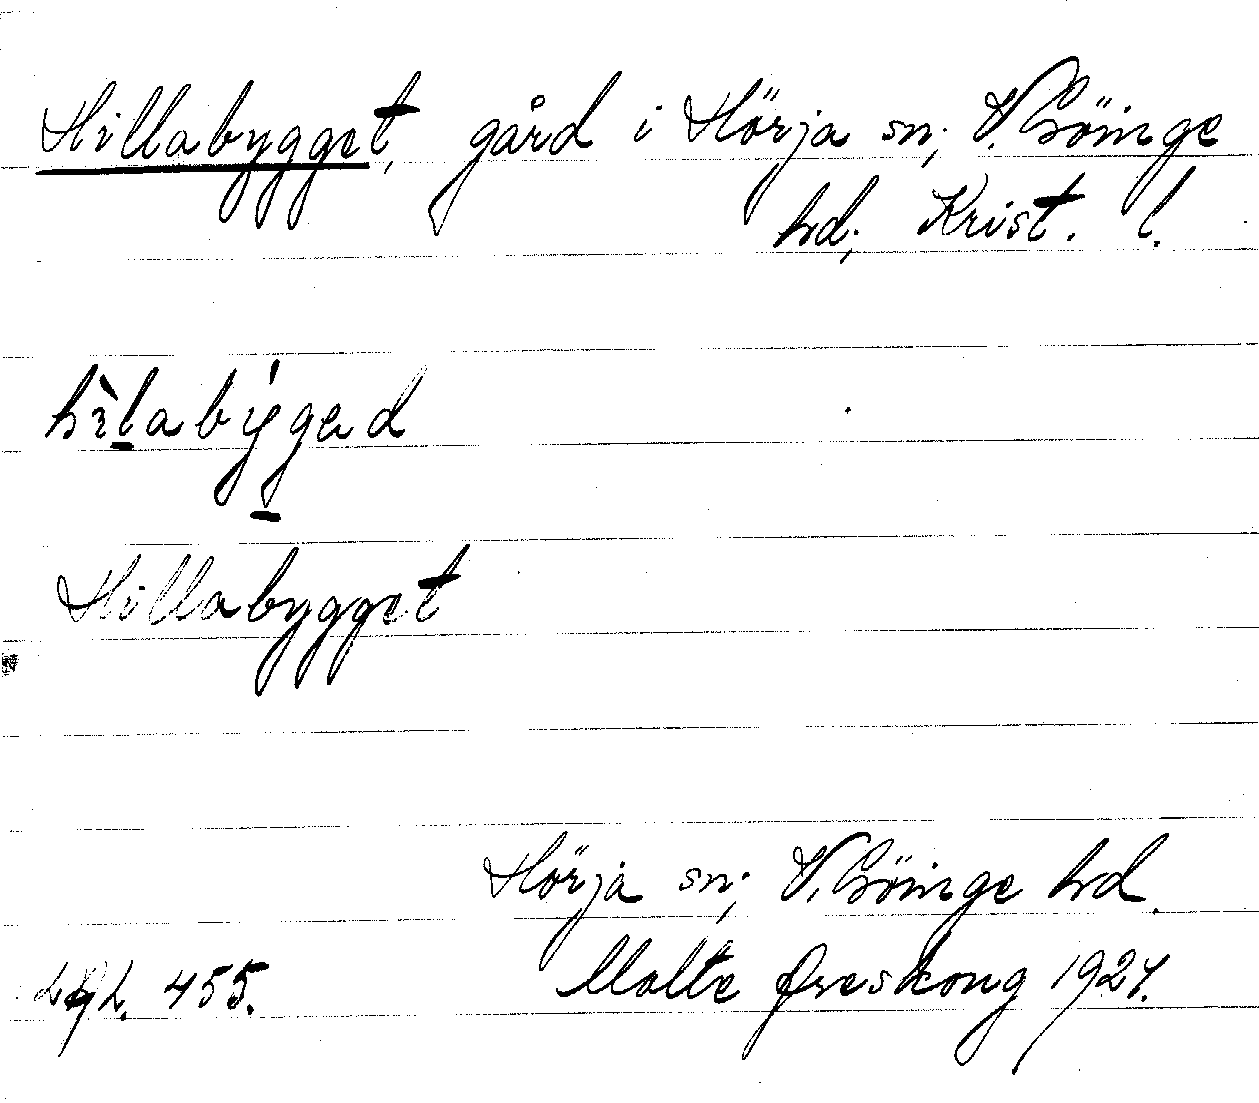 Hillabygget, gård i Hörja sn; V. Göinge
hd; Krist. l.
hìlabýgad
Hillabygget
Hörja sn; V. Göinge hd.
455. Malte Areskoug 1927.